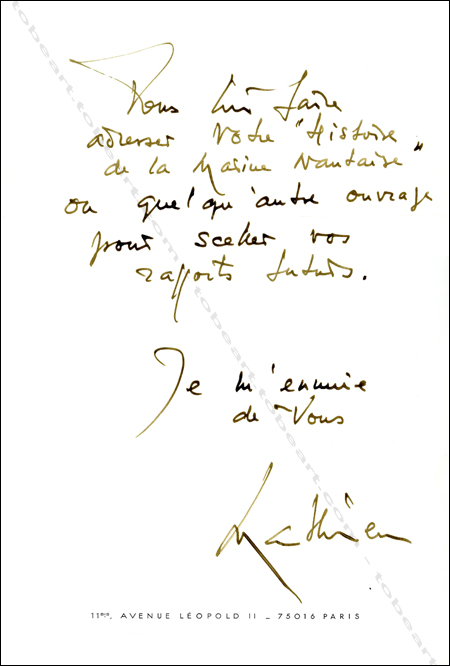 Vous lui faire
adresser Votre "Histoire
de la Marine Nantaise"
ou quelqu'autre ouvrage
pour sceller vos
rapports futurs.
Je m'ennuie
de Vous
Mathieu
11bis, AVENUE LÉOPOLD II _ 75016 PARIS
tobeart.com tobeart.com tobeart.com